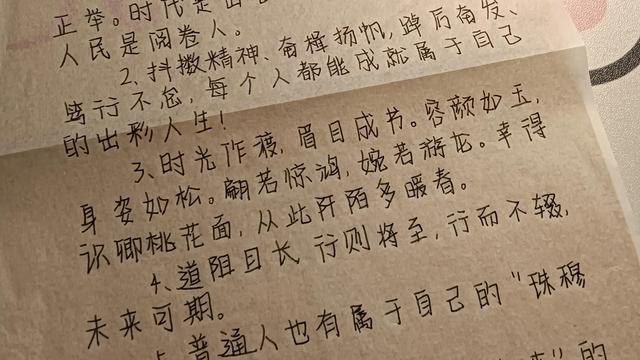 正举。时代是出
人民是阅卷人。
2、抖擞精神、奋楫扬帆,踔厉奋发、
笃行不怠,每个人都能成就属于自己
的出彩人生!
3、时光作渡,眉目成书。容颜如玉,
身姿如松。翩若惊鸿,婉若游龙。幸得
识卿桃花面,从此阡陌多暖春。
4、道阻且长 行则将至,行而不辍,
未来可期。
普通人也有属于自己的“珠穆
的